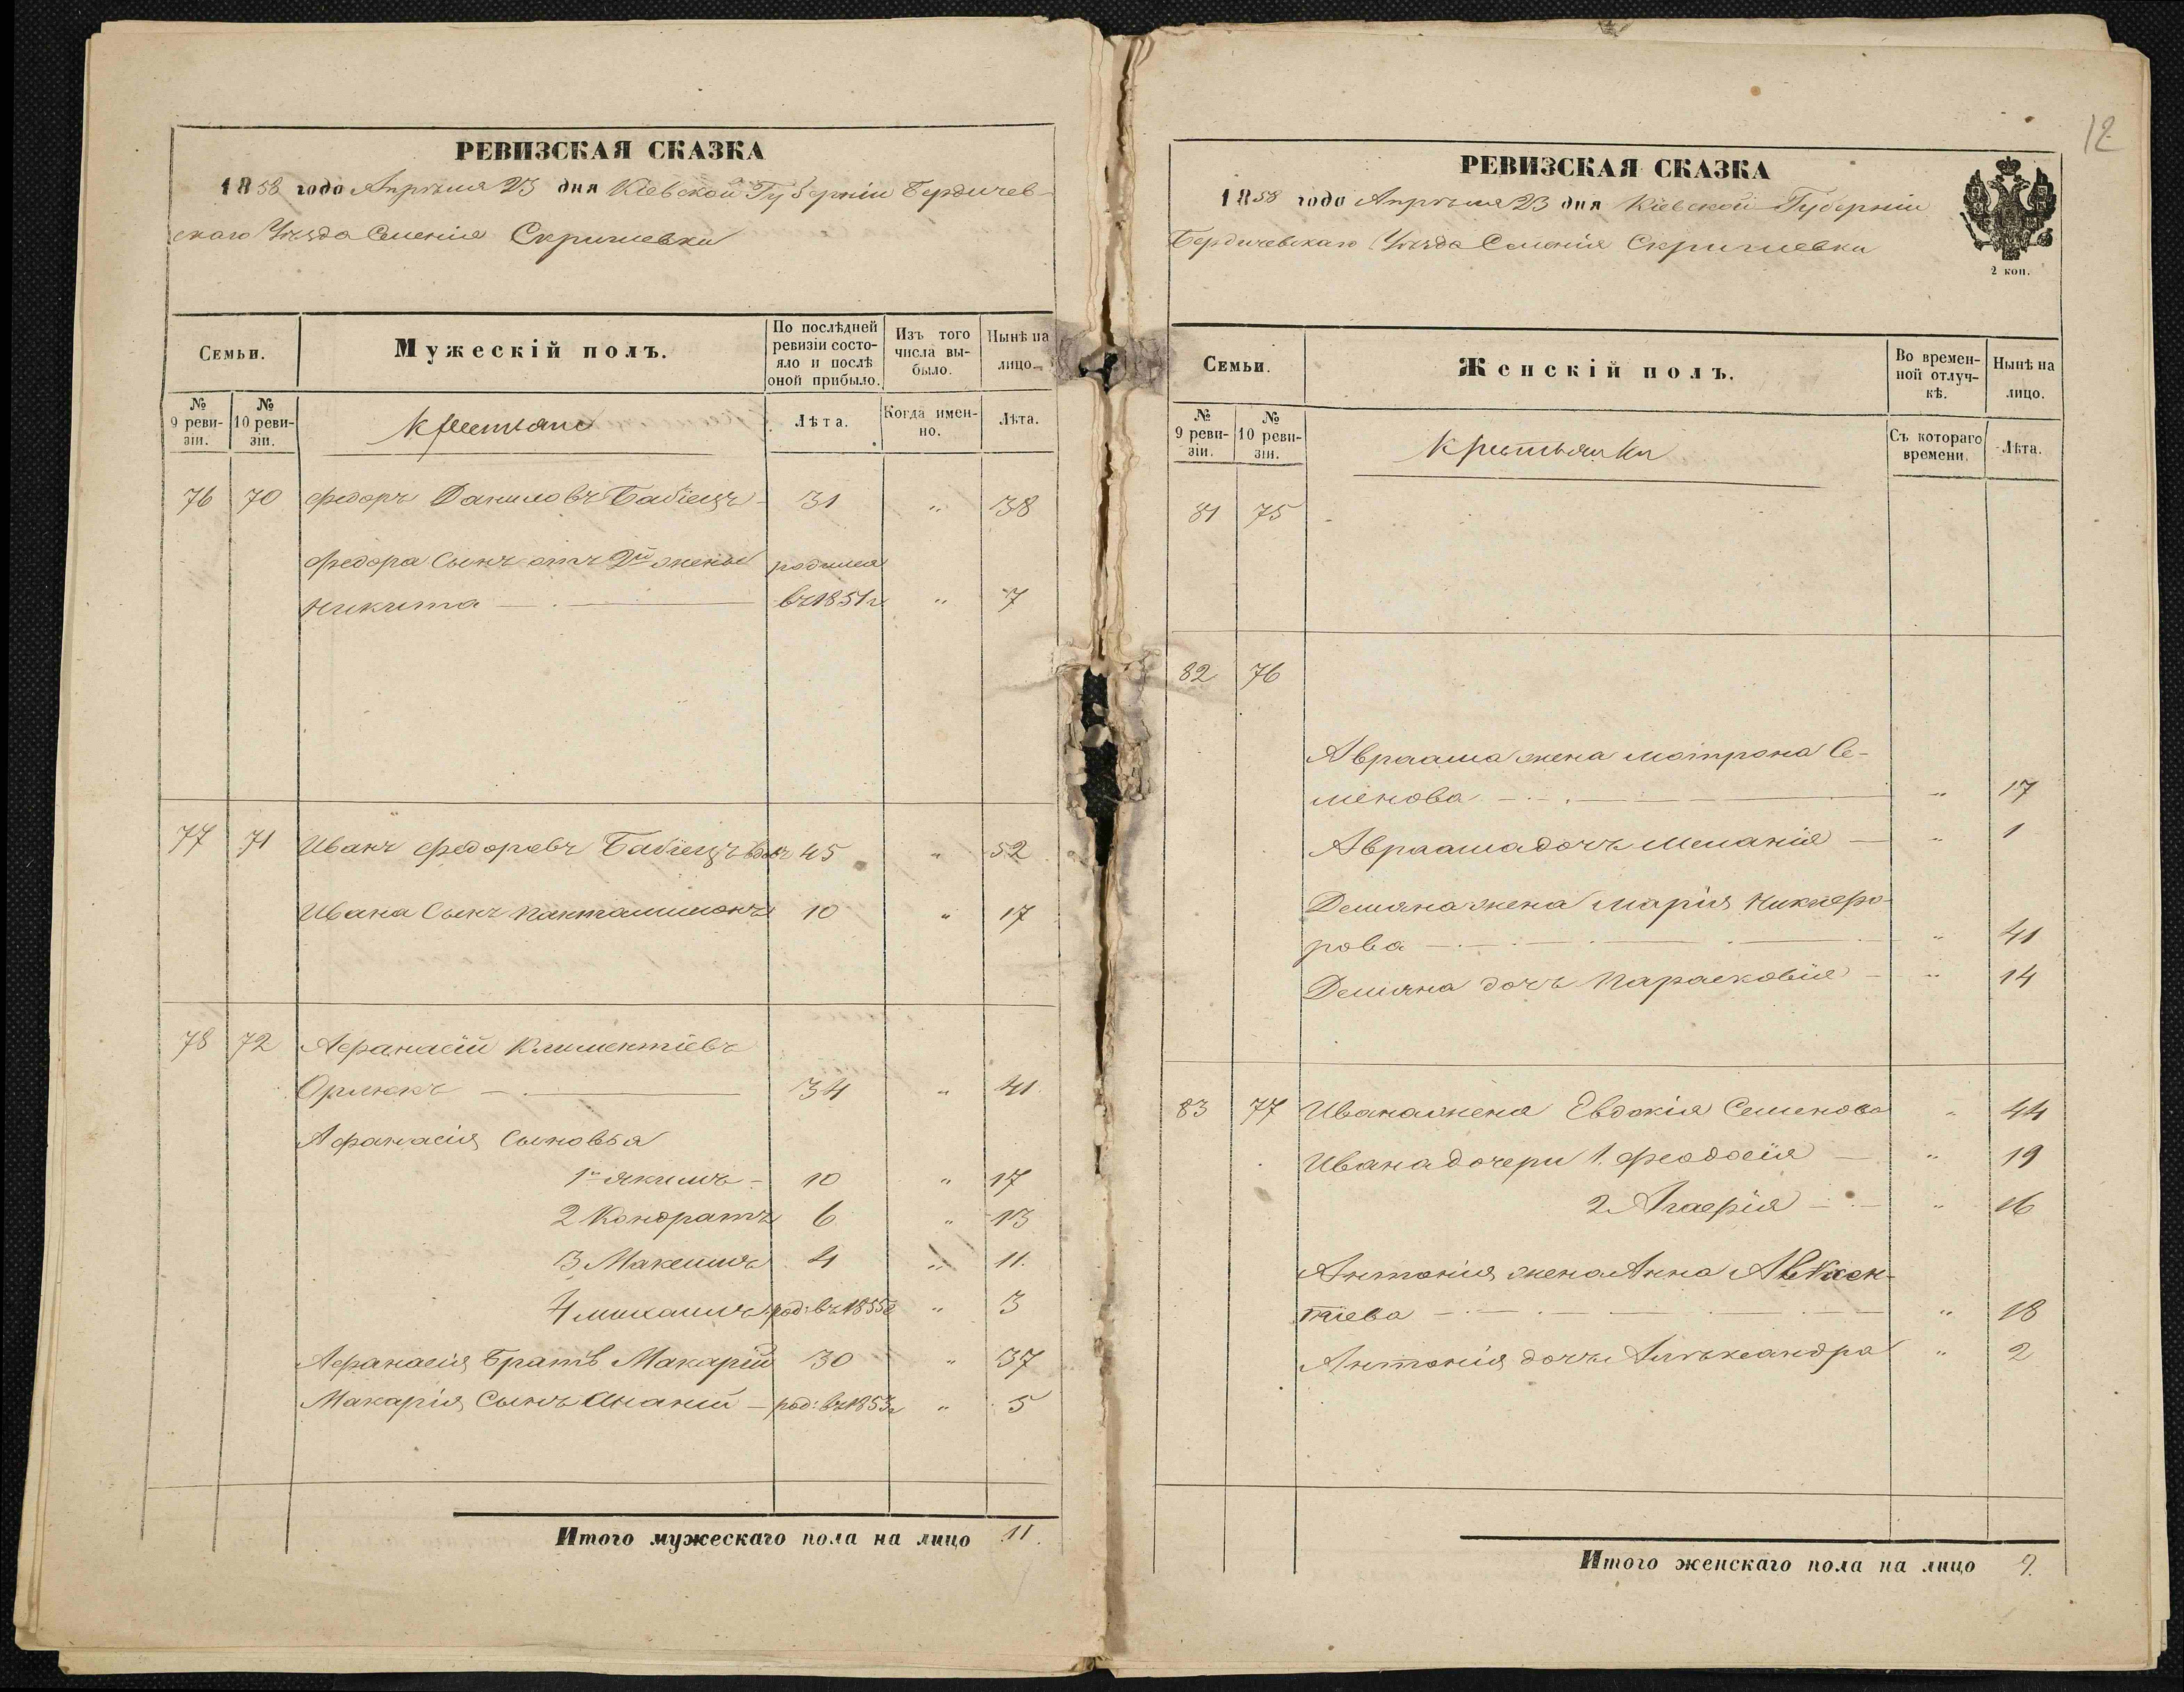 РЕВИЗСКАЯ СКАЗКА
1858 года Апрѣля 23 дня Кіевской Губерніи Бердичев-
скаго Уѣзда Селенія Скригиевки
Семьи.
Мужескій полъ.
По послѣдней ревизіи состояло и послѣ оной прибыло.
Изъ того числа выбыло.
Нынѣ на лицо.
№ 9 ревизіи.
№ 10 ревизіи.
Крестьяне
Лѣта.
Когда именно.
Лѣта.
76 70 Федоръ Даниловъ Бабіецъ 31 " 38
Федора Сынъ отъ 2й жены родился
Никита — въ 1851 г " 7
77 71 Иванъ Федоровъ Бабіецъ вдов 45 " 52
Ивана Сынъ Панталимонъ 10 " 17
78 72 Афанасій Климентіевъ
Орлюкъ — 34 " 41.
Афанасія Сыновья
1й Якимъ - 10 " 17
2 Кондратъ 6 " 13
3 Максимъ 4 " 11.
4 Михаилъ род: въ 1855 г " 3
Афанасія Братъ Макарій 30 " 37
Макарія Сынъ Ананій — род: въ 1853 г " 5
Итого мужескаго пола на лицо 11.
12
РЕВИЗСКАЯ СКАЗКА
1858 года Апрѣля 23 дня Кіевской Губерніи
Бердичевскаго Уѣзда Селенія Скригиевки
2 коп.
Семьи.
Женскій полъ.
Во временной отлучкѣ.
Нынѣ на лицо.
№ 9 ревизіи.
№ 10 ревизіи.
Крестьянки
Съ котораго времени.
Лѣта.
81 75
82 76
Авраама жена Мотрона Се-
менова — " 17
Авраама дочь Меланія — " 1
Демяна жена Марія Никифо-
рова — " 41
Демяна дочь Парасковія — " 14
83 77 Ивана жена Евдокія Семенова " 44
Ивана дочери 1. Феодосія — " 19
2 Агафія — " 16
Антонія жена Анна Авксен-
тіева — " 18
Антонія дочь Алѣксандра " 2
Итого женскаго пола на лицо 9.